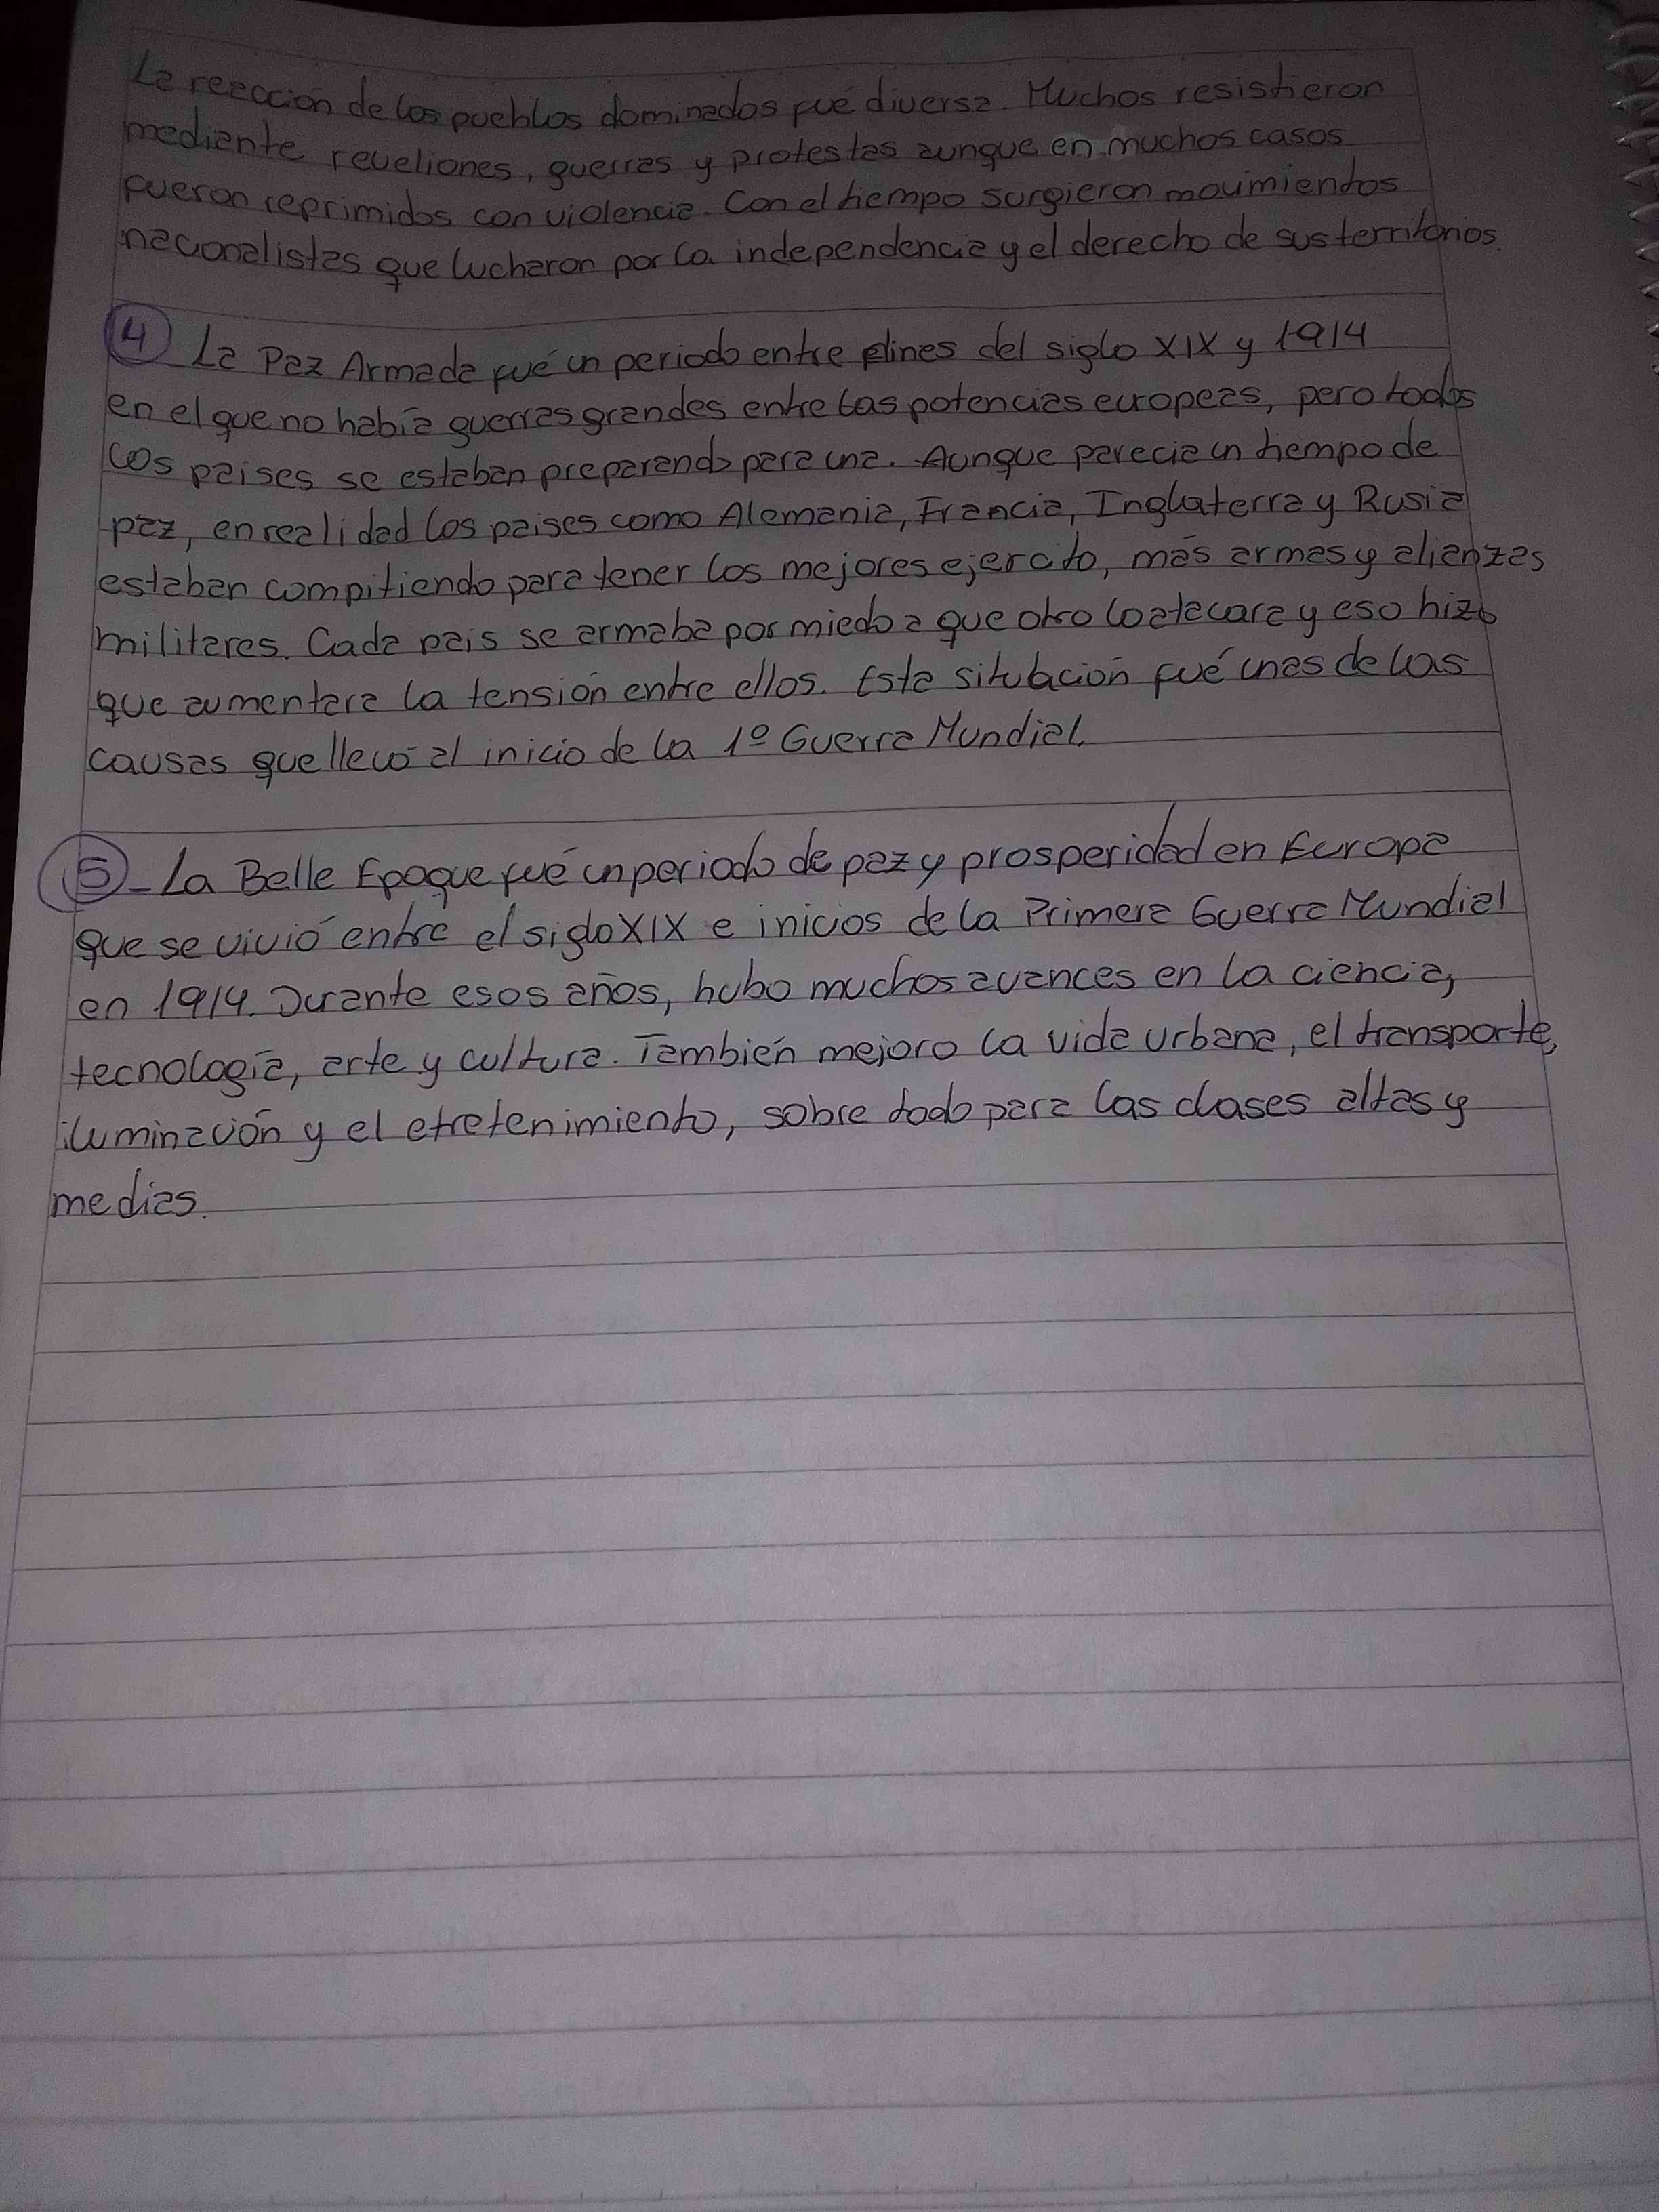 La reacción de los pueblos dominados fué diversa. Muchos resistieron
mediante reveliones, guerras y protestas aunque en muchos casos
fueron reprimidos con violencia. Con el tiempo surgieron movimientos
nacionalistas que lucharon por la independencia y el derecho de sus territorios.
4 La Paz Armada fué un periodo entre fines del siglo XIX y 1914
en el que no había guerras grandes entre las potencias europeas, pero todos
los paises se estaban preparando para una. Aunque parecia un tiempo de
paz, en realidad los paises como Alemania, Francia, Inglaterra y Rusia
estaban compitiendo para tener los mejores ejercito, más armas y alianzas
militares. Cada pais se armaba por miedo a que otro lo atacara y eso hizo
que aumentara la tensión entre ellos. Esta situación fué unas de las
causas que llevó al inicio de la 1º Guerra Mundial.
5- La Belle Epoque fué un periodo de paz y prosperidad en Europa
que se vivió entre el siglo XIX e inicios de la Primera Guerra Mundial
en 1914. Durante esos años, hubo muchos avances en la ciencia,
tecnología, arte y cultura. También mejoro la vida urbana, el transporte,
iluminación y el etretenimiento, sobre todo para las clases altas y
medias.